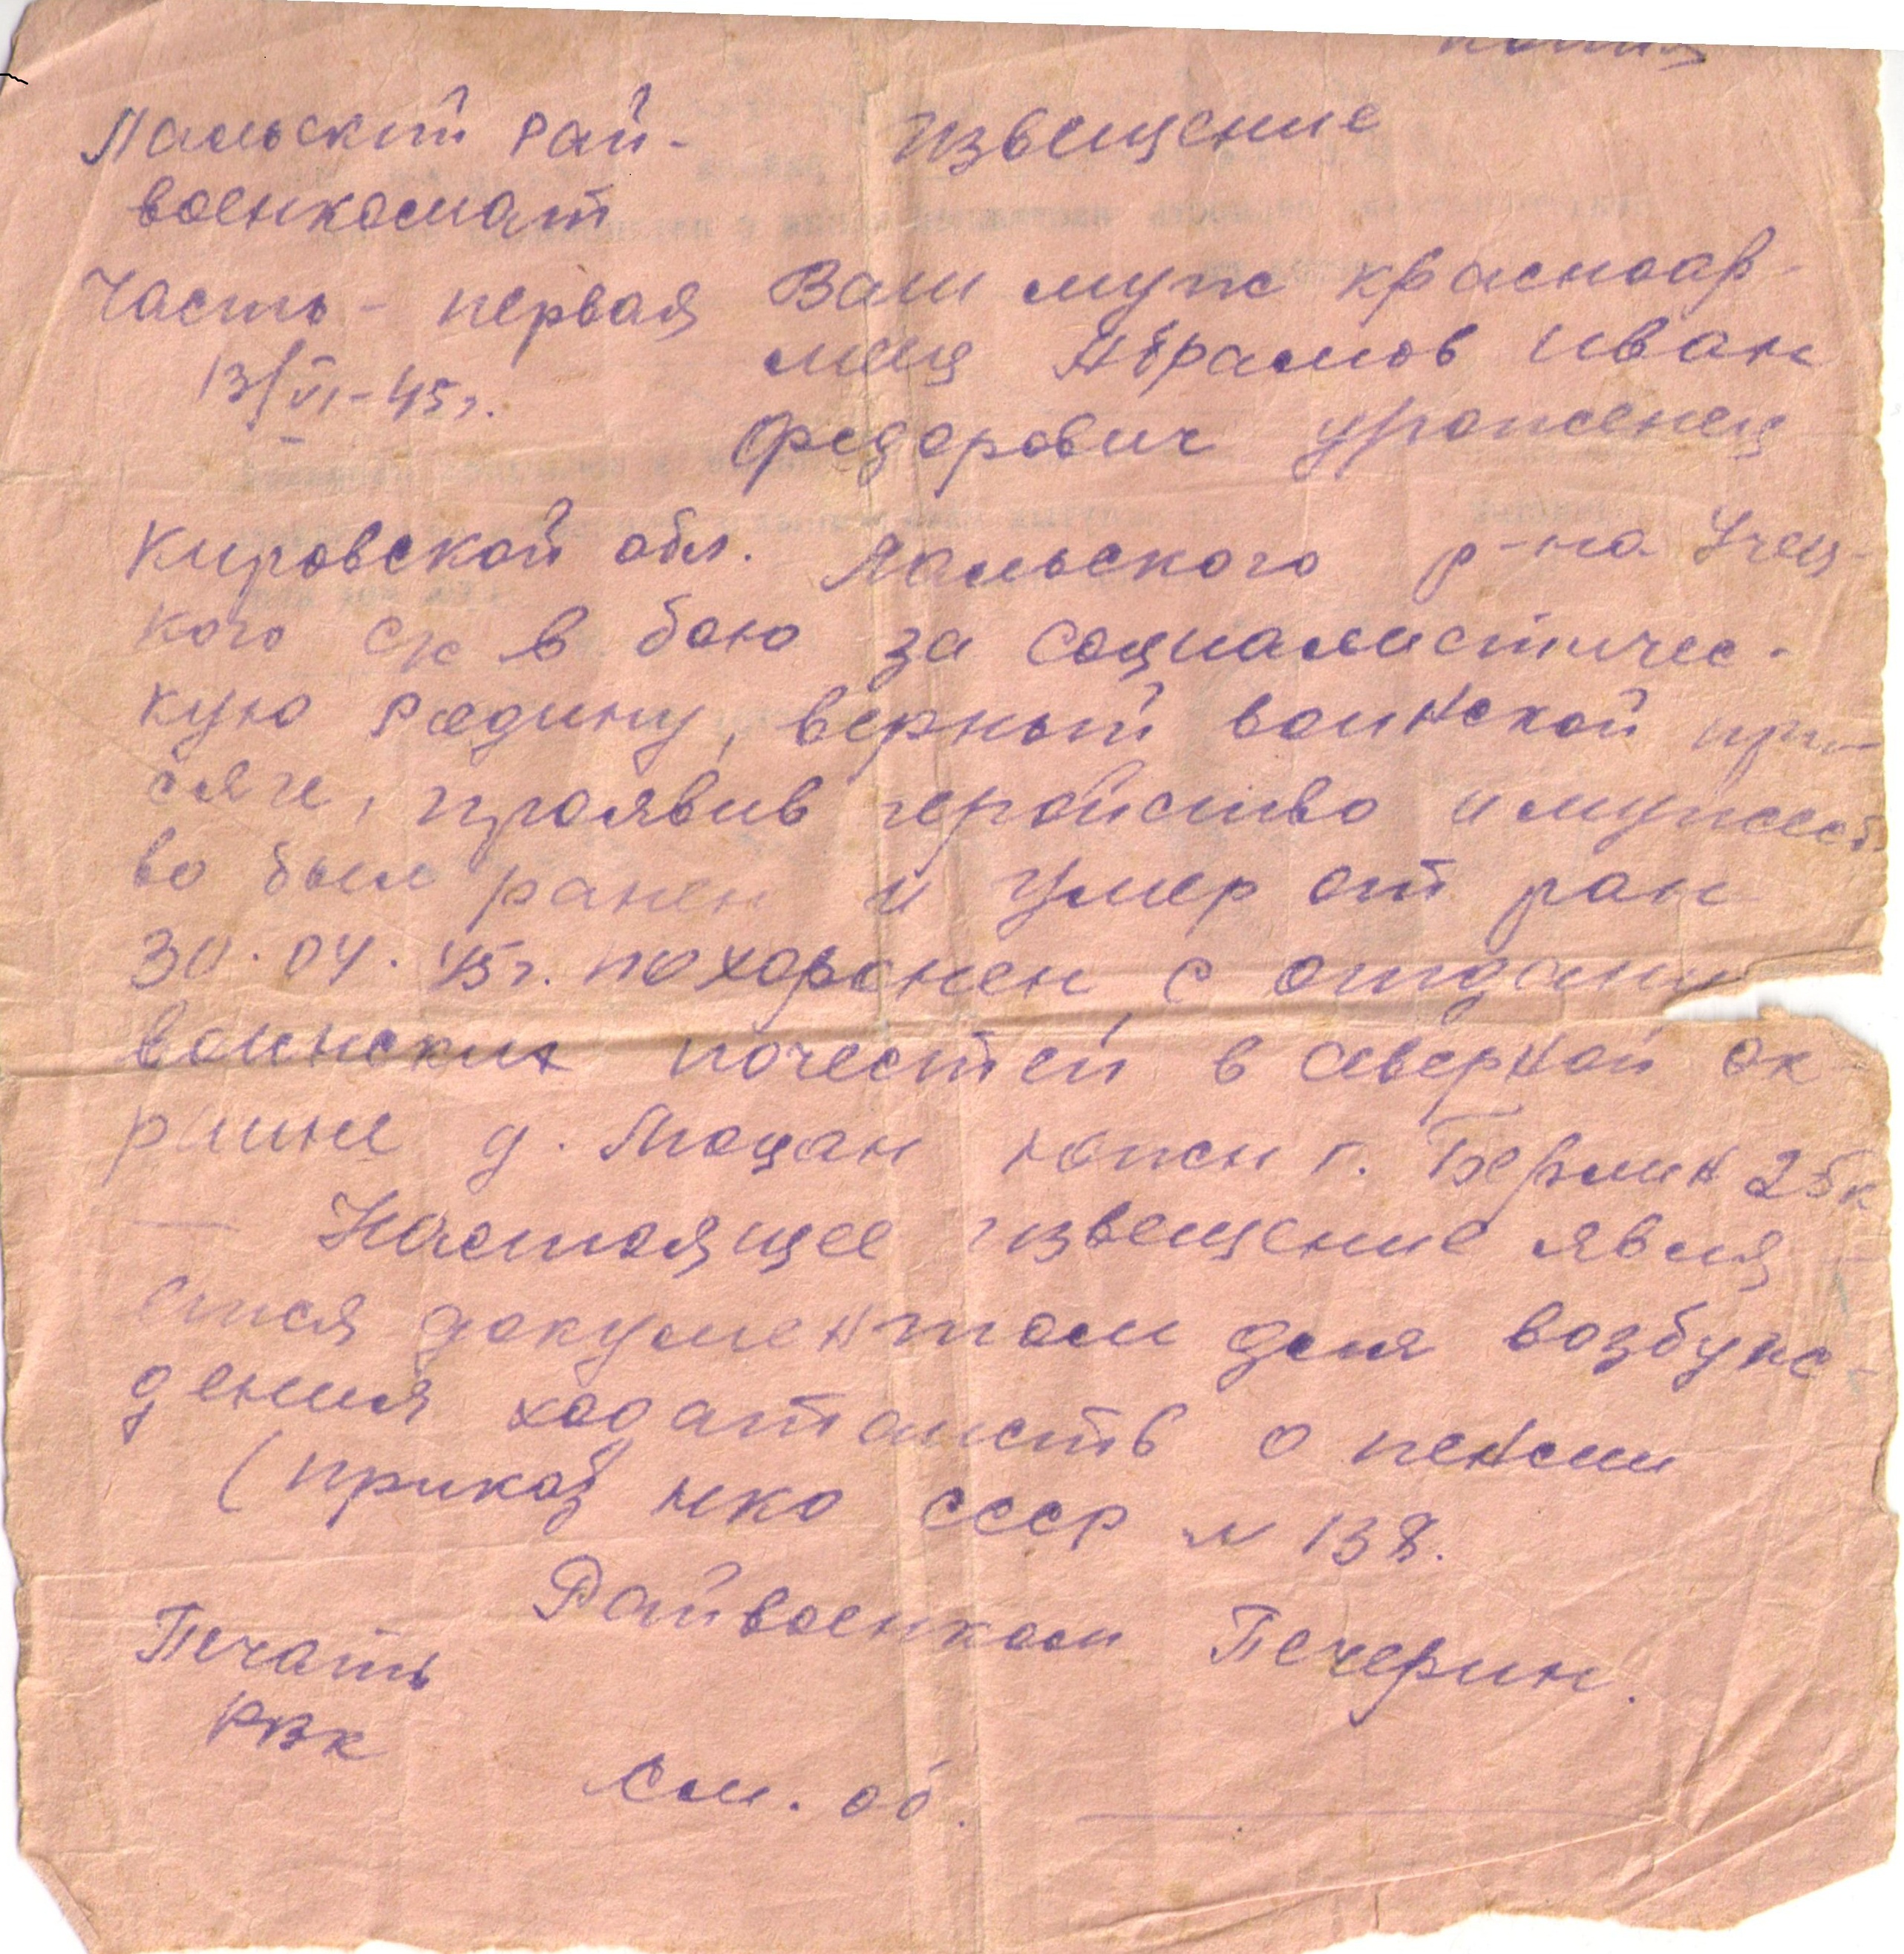 копия
Лальский рай-
военкомат
Извещение
Часть - первая
13/VI-45г.
Ваш муж красноар-
меец Абрамов Иван
Федорович уроженец
Кировской обл. Лальского р-на Учец-
кого с/с в бою за социалистичес-
кую Родину, верный воинской при-
сяге, проявив геройство и мужест
во был ранен и умер от ран
30.04.45г. похоронен с отдани
воинских почестей в северной ок-
раине д. Тоцан южн г. Берлин 25к
Настоящее извещение явля
ется документом для возбуж-
дения ходатаиств о пенсии
(приказ нко СССР N 138.
Райвоенком Печерин.
Печать
РВК
См. об.